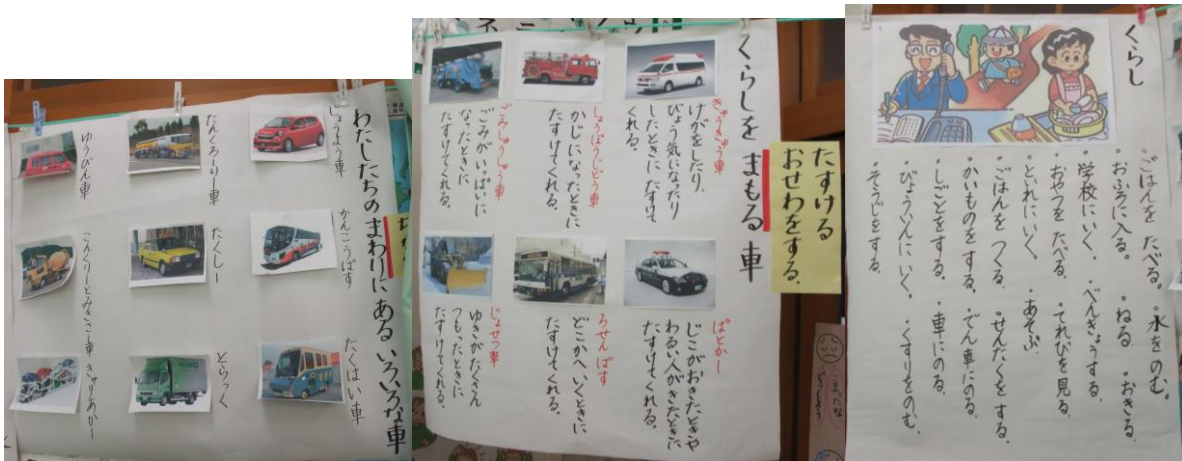 わたしたちのまわりにある いろいろな車
じょうよう車
かんこうばす
たくはい車
たんくろーりー車
たくしー
とらっく
ゆうびん車
こんくりーとみきさー車
きゃりあかー
くらしを まもる 車
たすける
おせわをする。
きゅうきゅう車
けがをしたり、
びょう気になったり
したときに たすけて
くれる。
しょうぼうじどう車
かじになったときに
たすけてくれる。
ごみしゅうしゅう車
ごみがいっぱいに
なったときに
たすけてくれる。
ぱとかー
じこがおきたときや
わるい人がきたときに
たすけてくれる。
ろせんばす
どこかへいくときに
たすけてくれる。
じょせつ車
ゆきがたくさん
つもったときに
たすけてくれる。
くらし
・ごはんを たべる。・水をのむ。
・おふろに入る。・ねる ・おきる
・学校にいく。・べんきょうする。
・おやつを たべる。・てれびを見る。
・といれにいく。・あそぶ
・ごはんを つくる。・せんたくを する。
・かいものを する。・でん車にのる。
・しごとをする。・車にのる。
・びょういんに いく。・くすりをのむ。
・そうじをする。